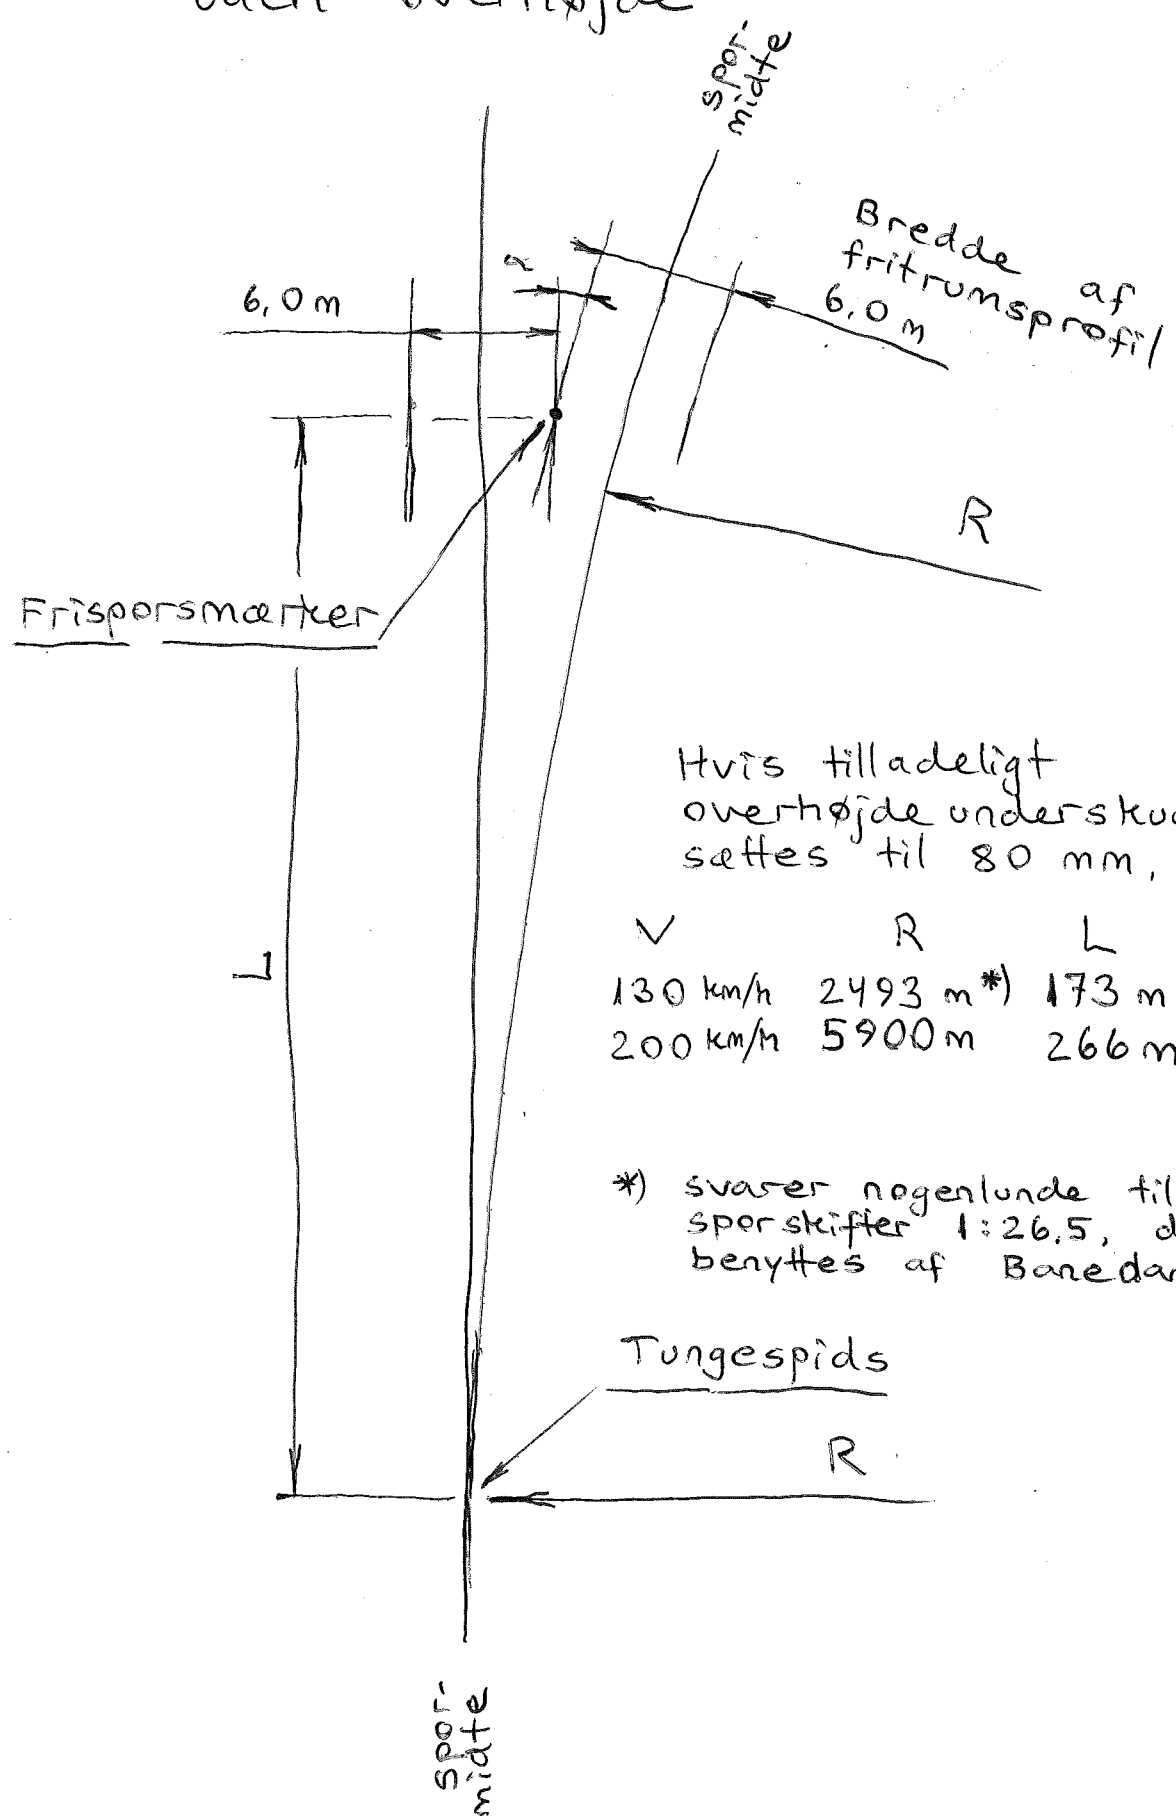 uden overhøjde
spor-
midte
Bredde af
fritrumsprofil
6,0 m
α
6,0 m
R
Frisporsmærker
Hvis tilladeligt
overhøjde undersku
sættes til 80 mm,
V R L
130 km/h 2493 m *) 173 m
200 km/h 5900 m 266 m
L
*) svarer nogenlunde til
sporskifter 1:26,5, d
benyttes af Banedan
Tungespids
R
spor-
midte